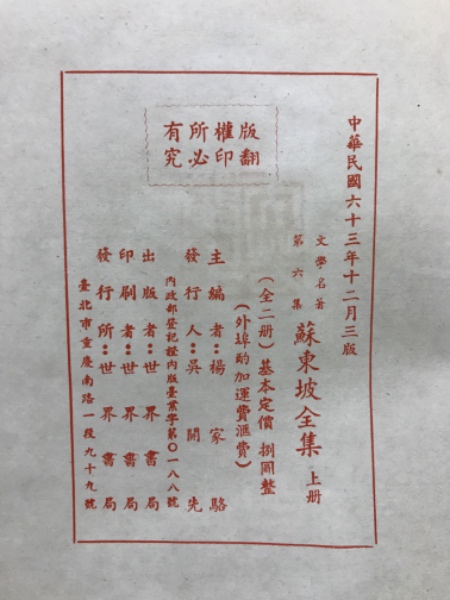 版權所有
翻印必究
中華民國六十三年十二月三版
文學名著
第六集
蘇東坡全集 上册
(全二册) 基本定價 捌圓整
(外埠酌加運費滙費)
主編者:楊家駱
發行人:吳開先
內政部登記證內版臺業字第〇一八八號
出版者:世界書局
印刷者:世界書局
發行所:世界書局
臺北市重慶南路一段九十九號